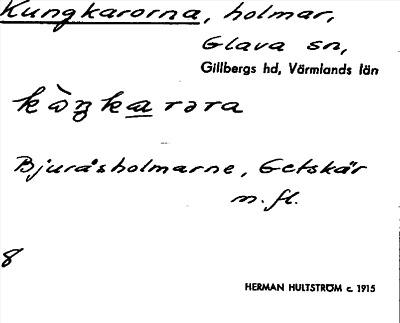 Kungkarorna, holmar,
Glava sn,
Gillbergs hd, Värmlands län
kòŋkarəra
Bjuråsholmarne, Getskär
m. fl.
8
HERMAN HULTSTRÖM c. 1915